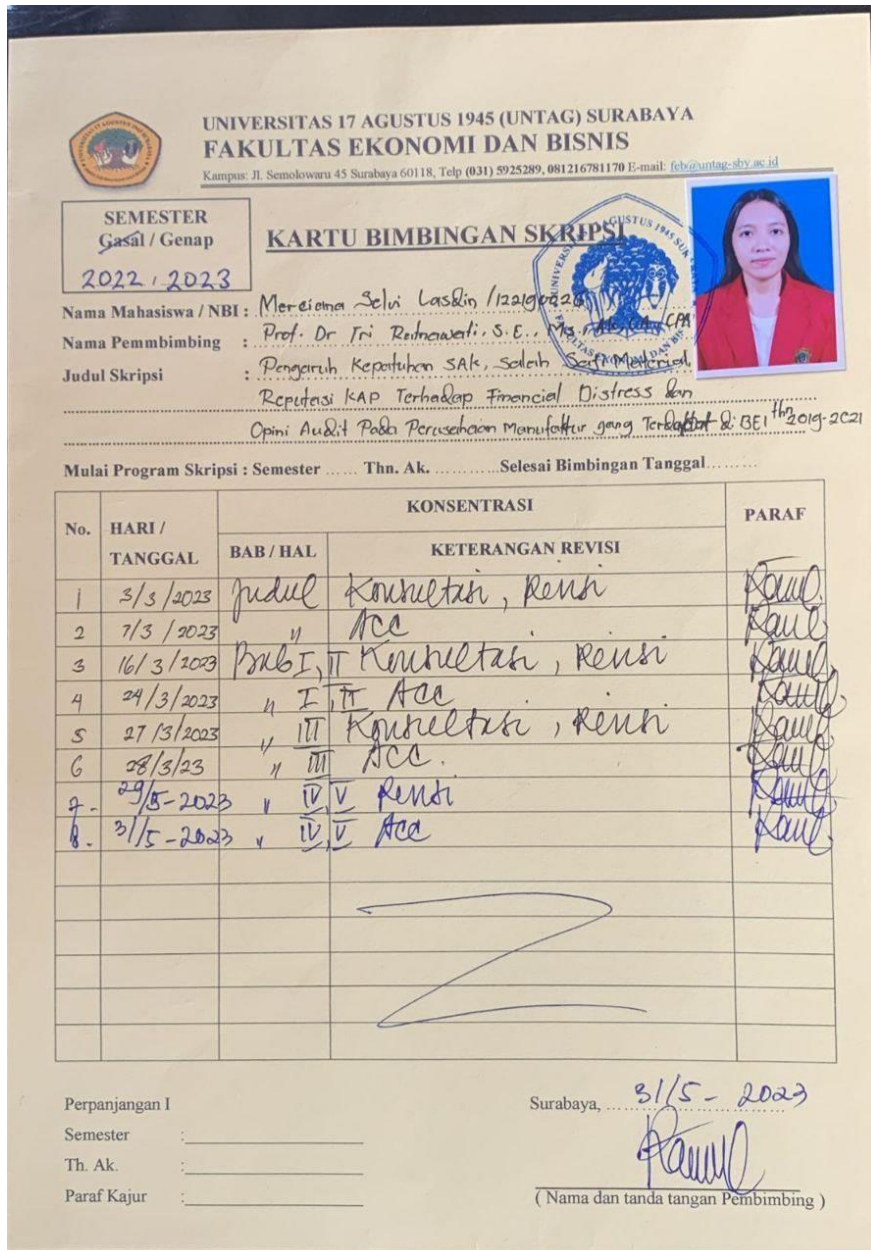 UNIVERSITAS 17 AGUSTUS 1945 (UNTAG) SURABAYA
FAKULTAS EKONOMI DAN BISNIS
Kampus: Jl. Semolowaru 45 Surabaya 60118, Telp (031) 5925289, 081216781170 E-mail: feb@untag-sby.ac.id
SEMESTER
Gasal / Genap
2022, 2023
KARTU BIMBINGAN SKRIPSI
Nama Mahasiswa / NBI : Merciana Selvi Lasdin /
Nama Pemmbimbing : Prof. Dr Tri Ratnawati, S.E., Ms., Ak, CA, CPA
Judul Skripsi : Pengaruh Kepatuhan SAK, Salah Saji Material,
Reputasi KAP Terhadap Financial Distress dan
Opini Audit Pada Perusahaan Manufaktur yang Terdaftar di BEI thn 2019-2021
Mulai Program Skripsi : Semester ...... Thn. Ak. ............Selesai Bimbingan Tanggal.........
No. HARI / TANGGAL KONSENTRASI PARAF
BAB / HAL KETERANGAN REVISI
1 3/3/2023 Judul Konsultasi, Revisi
2 7/3/2023 " ACC
3 16/3/2023 Bab I, II Konsultasi, Revisi
4 24/3/2023 " I, II Acc
5 27/3/2023 " III Konsultasi, Revisi
6 28/3/23 " III Acc.
7. 29/5-2023 " IV, V Revisi
8. 31/5-2023 " IV, V Acc
Perpanjangan I
Semester :
Th. Ak. :
Paraf Kajur :
Surabaya, 31/5-2023
( Nama dan tanda tangan Pembimbing )